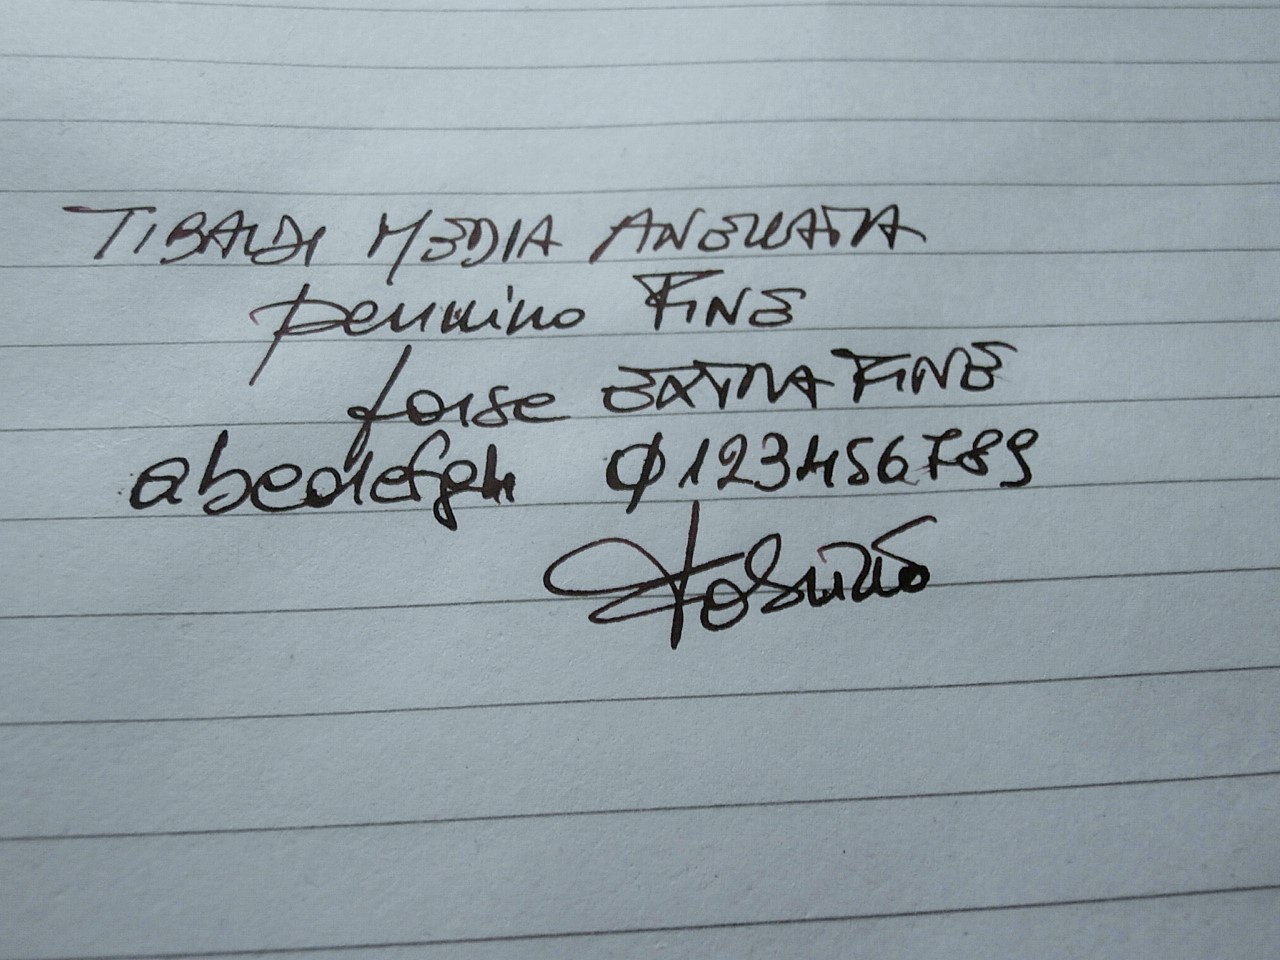 TIBALDI MEDIA ANELLATA
pennino FINE
forse EXTRA FINE
abcdefgh 0123456789